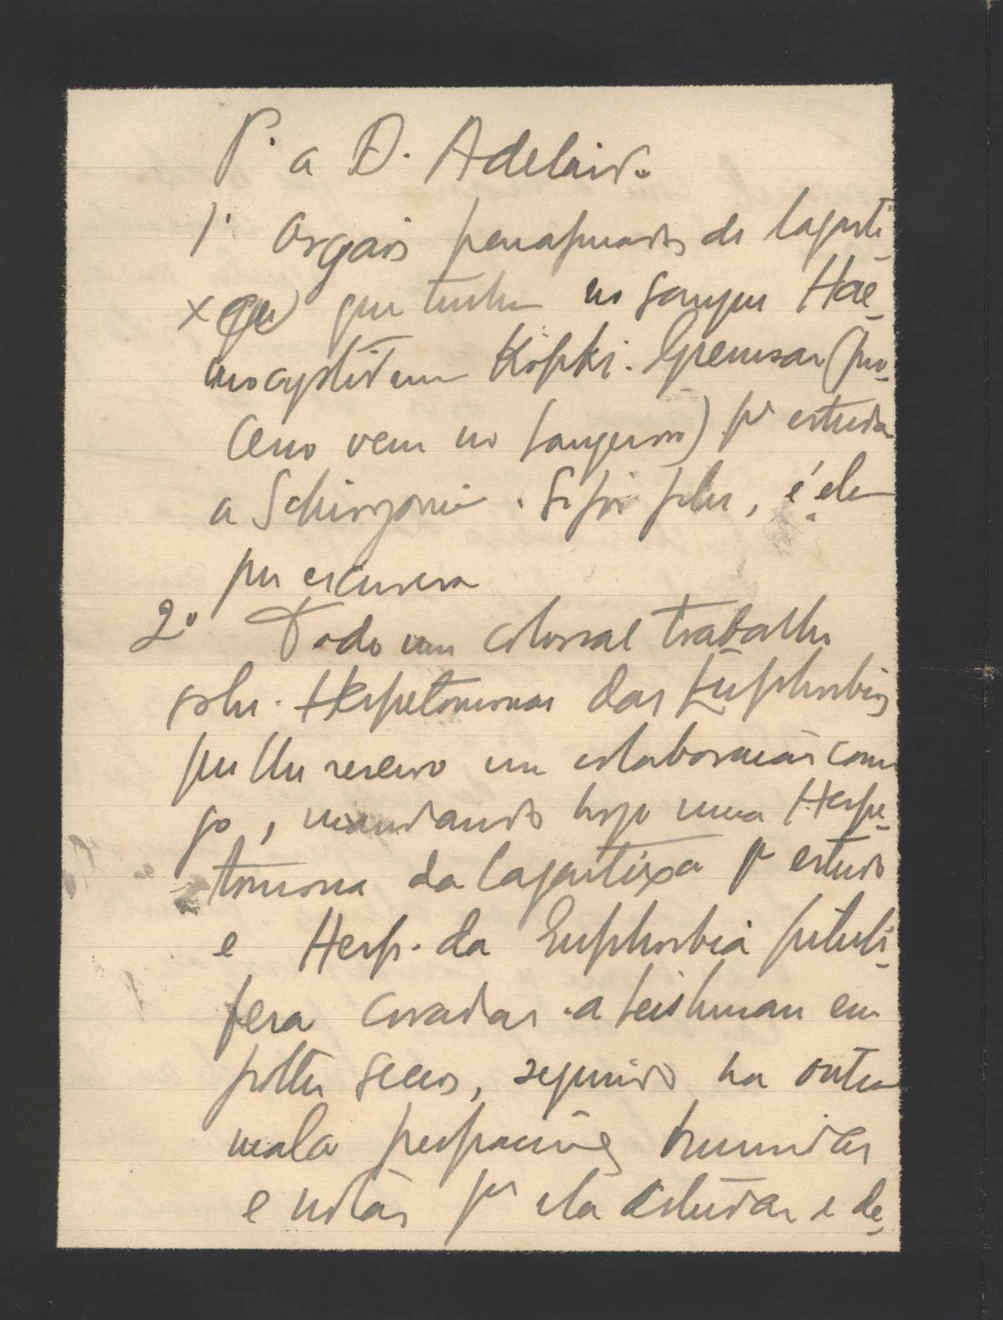 P.a a D. Adelaide
1º Orgãos parafinados de lagarti-
xa que tinha no sangue Hae-
mocystidium Kopki. Giemsar (pro-
cesso vem no frasco) pª estudar
a Schizogonia. Si for feliz, é ela
que escreverá
2º Todo um colossal trabalho
sobre Herpetomonas das Euphorbias
que lhe reservo em colaboração comi-
go, mandando hoje uma Herpe-
tomona da lagartixa pª estudo
e Herp. da Euphorbia pilluli-
fera coradas a Leishman em
frottis seccos, seguindo na outra
mala preparações humidas
e notas pª ela estudar e de-